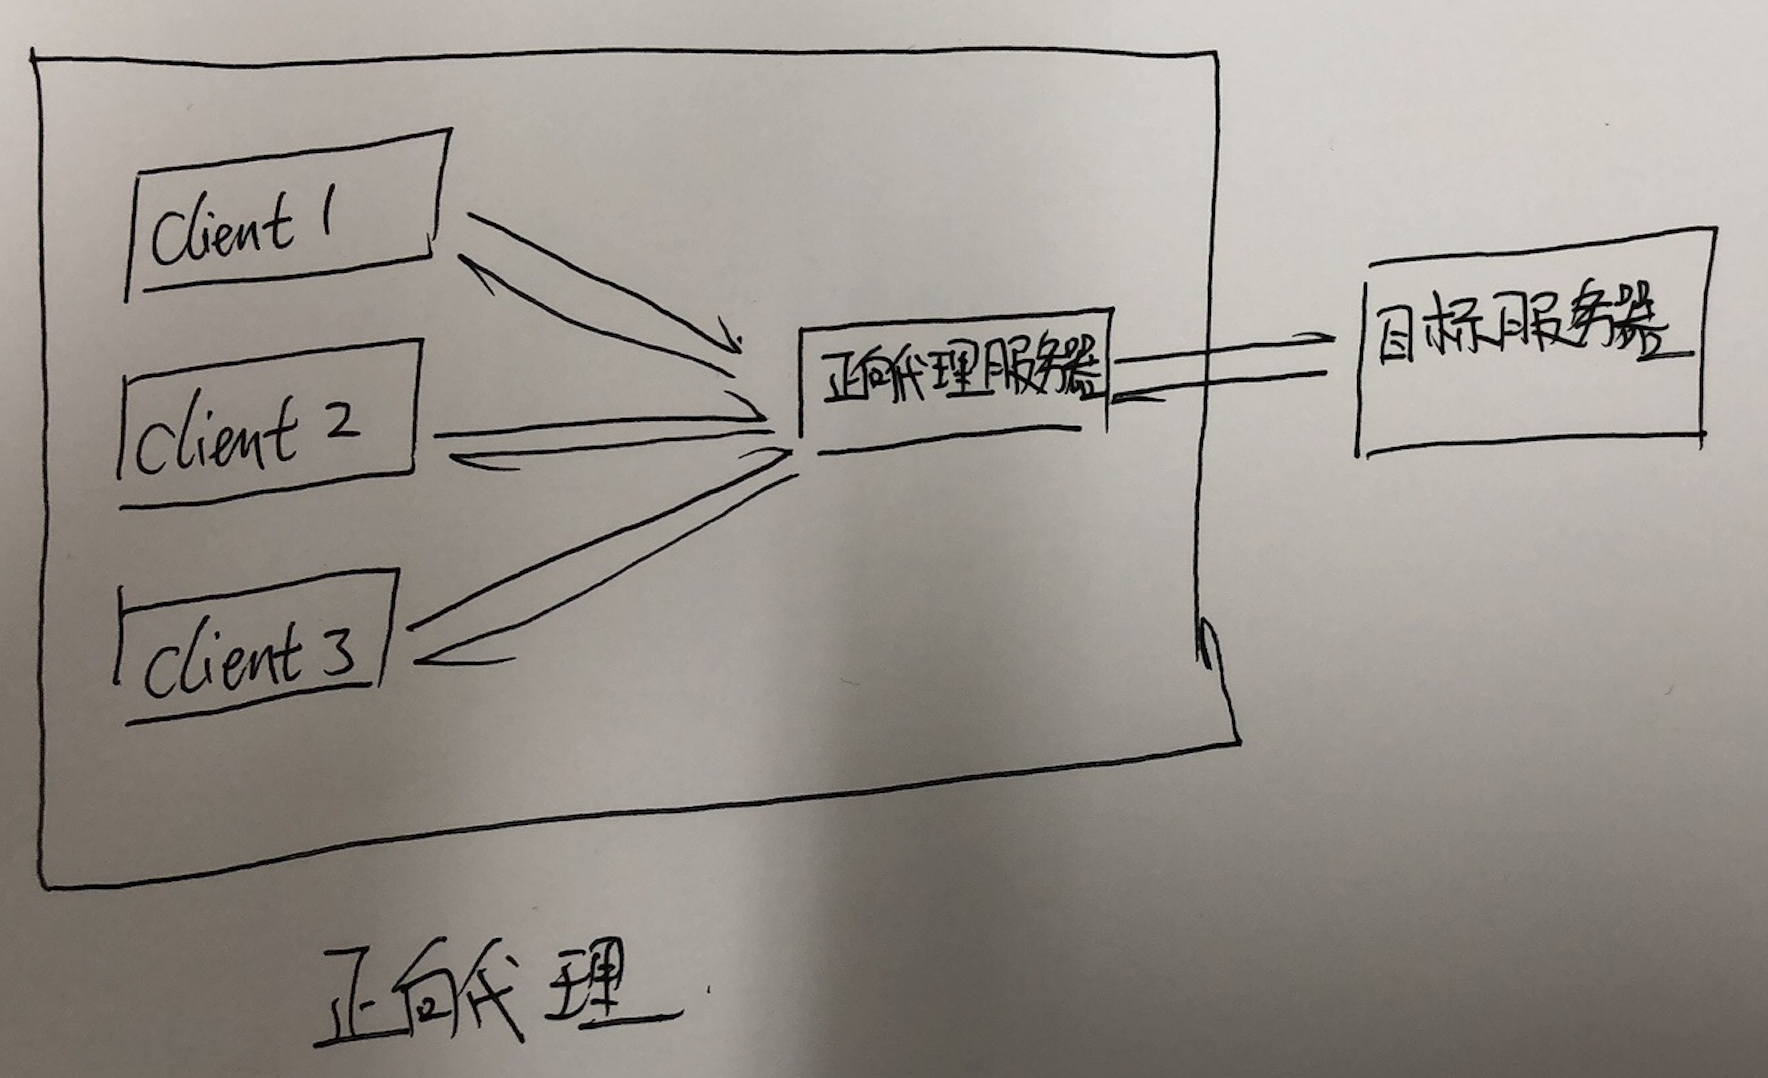 Client 1
Client 2
Client 3
正向代理服务器
目标服务器
正向代理